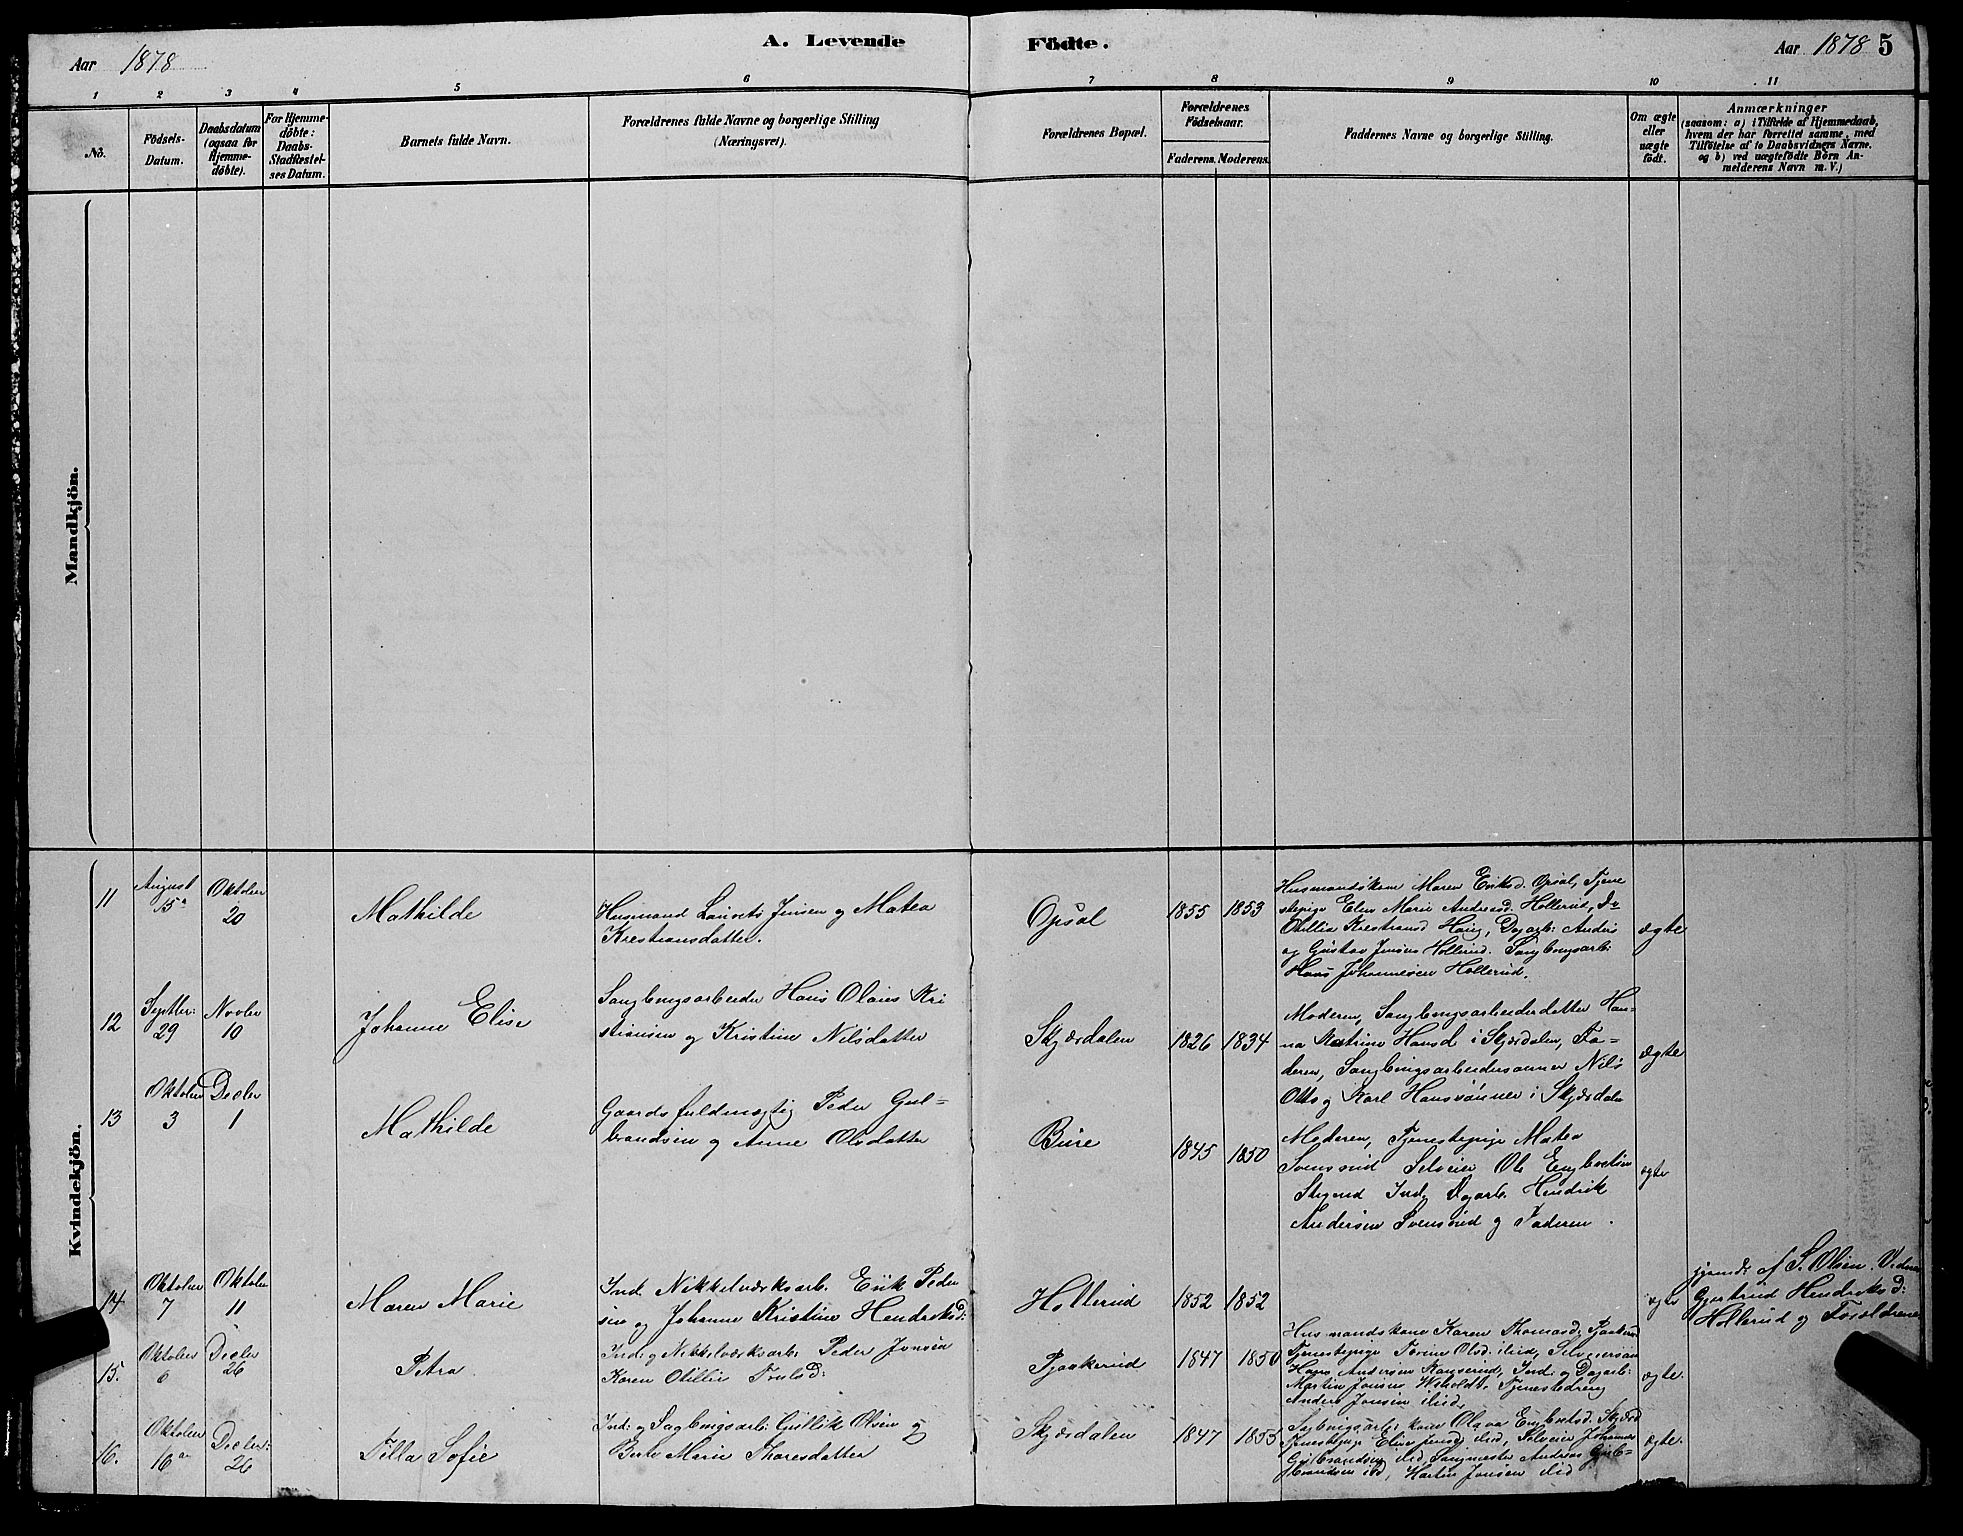 A. Levende Födte.
Aar 1878
Aar 1878 5
1 2 3 4 5 6 7 8 9 10 11
No.
Födsels-
Datum.
Daabsdatum
(ogsaa for
Hjemme-
döbte).
For Hjemme-
döbte:
Daabs-
Stadfæstel-
ses Datum.
Barnets fulde Navn.
Forældrenes fulde Navne og borgerlige Stilling
(Næringsvei).
Forældrenes Bopæl.
Forældrenes
Födselsaar.
Faderens. Moderens.
Faddernes Navne og borgerlige Stilling.
Om ægte
eller
uægte
födt.
Anmærkninger
(saasom: a) i Tilfælde af Hjemmedaab,
hvem der har forrettet samme, med
Tilföielse af to Daabsvidners Navne.
og b) ved uægtefödte Börn An-
melderens Navn m. V.)
Mandkjön.
Kvindekjön.
11
August
15
Oktober
20
Mathilde
Husmand Lauvets Jensen og Matea
Krestiansdatter.
Opsal
1855 1853
Husmandskone Maren Eriksd. Opsal, Tjene
stepige Elen Marie Andreasd. Hollerud, do
Otillia Krestiansd Haug, Dagarb: Anders
og Gustav Jensen Hollerud. Saugbrugsarb:
Hans Johannesen Hollerud.
ægte
12
Septber:
29
Novber
10
Johanne Elise
Saugbrugsarbeider Hans Olaies Kri
stiansen og Kristine Nilsdatter
Skjærdalen
1826 1834
Moderen, Saugbrugsarbeiderdatter Han-
na Katrine Hansd i Skjærdalen, Fa-
deren, Saugbrugsarbeidersønner Nils
Otto og Karl Hanssønner i Skjærdalen
ægte
13
Oktober
3
Decber
1
Mathilde
Gaardsfuldmægtig Peder Gul-
brandsen og Anne Olsdatter
Bure
1845 1850
Moderen, Tjenestepige Matea
Svensrud Selveier Ole Engbretsen
Ind, Dagarb. Hendrik
Andersen Svensrud og Faderen.
ægte
14
Oktober
7
Oktober
11
Maren Marie
Ind. Nikkelværksarb. Erik Peder
sen og Johanne Kristine Hendriksd:
Hollerud
1852 1852
ægte
af S. Olsen. Vidner
Gjertrud Hendriksd:
Hollerud og Forældrene
15.
Oktober
6
Decber
26
Petra
Ind. og Nikkelværksarb. Peder Jonsen
Karen Otillie Trulsd:
Pjaakerud
1847 1850
Husmandskone Karen Thomasd. Pjaakerud
Tjenestepige Torine Olsd. ibid,
Hans Andersen Ind. og Dagarb:
Martin Jonsen Tjenestedreng
Anders Jonsen ibid,
ægte.
16.
Oktober
16
Decber:
26
Tilla Sofie
Ind: og Sagbrugsarb: Gullik Olsen og
Berte Marie Thoresdatter
Skjærdalen
1847 1855
Sagbrugsarb: kone Olava Engbretsd. Skjærd
Tjenestepige Elise Jensd. ibid, Selveier Johannes
Gulbrandsen ibid, Saugmester Andreas Gulb-
brandsen ibid, Martin Jonsen ibid
ægte.